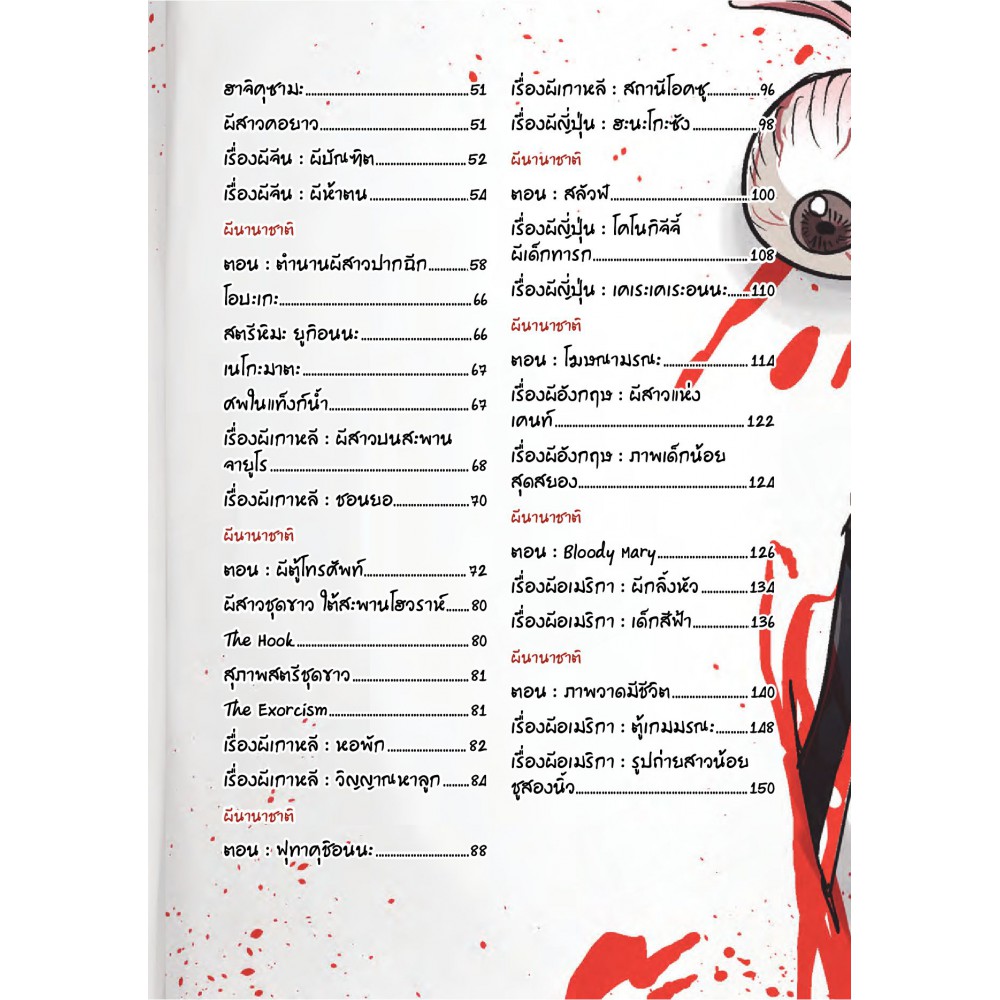 ฮาจิคุซามะ 51
ผีสาวคอยาว 51
เรื่องผีจีน : ผีบัณฑิต 52
เรื่องผีจีน : ผีห้าตน 54
ผีนานาชาติ
ตอน : ตำนานผีสาวปากฉีก 58
โอบะเกะ 66
สตรีหิมะ ยูกิอนนะ 66
เนโกะมาตะ 67
ศพในแท็งก์น้ำ 67
เรื่องผีเกาหลี : ผีสาวบนสะพาน
จายูโร 68
เรื่องผีเกาหลี : ชอนยอ 70
ผีนานาชาติ
ตอน : ผีตู้โทรศัพท์ 72
ผีสาวชุดขาว ใต้สะพานโฮวราห์ 80
The Hook 80
สุภาพสตรีชุดขาว 81
The Exorcism 81
เรื่องผีเกาหลี : หอพัก 82
เรื่องผีเกาหลี : วิญญาณหาลูก 84
ผีนานาชาติ
ตอน : ฟุทาคุชิอนนะ 88
เรื่องผีเกาหลี : สถานีโอคซู 96
เรื่องผีญี่ปุ่น : ฮะนะโกะซัง 98
ผีนานาชาติ
ตอน : สลัวฟ์ 100
เรื่องผีญี่ปุ่น : โคโนกิจีจี้
ผีเด็กทารก 108
เรื่องผีญี่ปุ่น : เคเระเคเระอนนะ 110
ผีนานาชาติ
ตอน : โฆษณามรณะ 114
เรื่องผีอังกฤษ : ผีสาวแห่ง
เคนท์ 122
เรื่องผีอังกฤษ : ภาพเด็กน้อย
สุดสยอง 124
ผีนานาชาติ
ตอน : Bloody Mary 126
เรื่องผีอเมริกา : ผีกลิ้งหัว 134
เรื่องผีอเมริกา : เด็กสีฟ้า 136
ผีนานาชาติ
ตอน : ภาพวาดมีชีวิต 140
เรื่องผีอเมริกา : ตู้เกมมรณะ 148
เรื่องผีอเมริกา : รูปถ่ายสาวน้อย
ชูสองนิ้ว 150